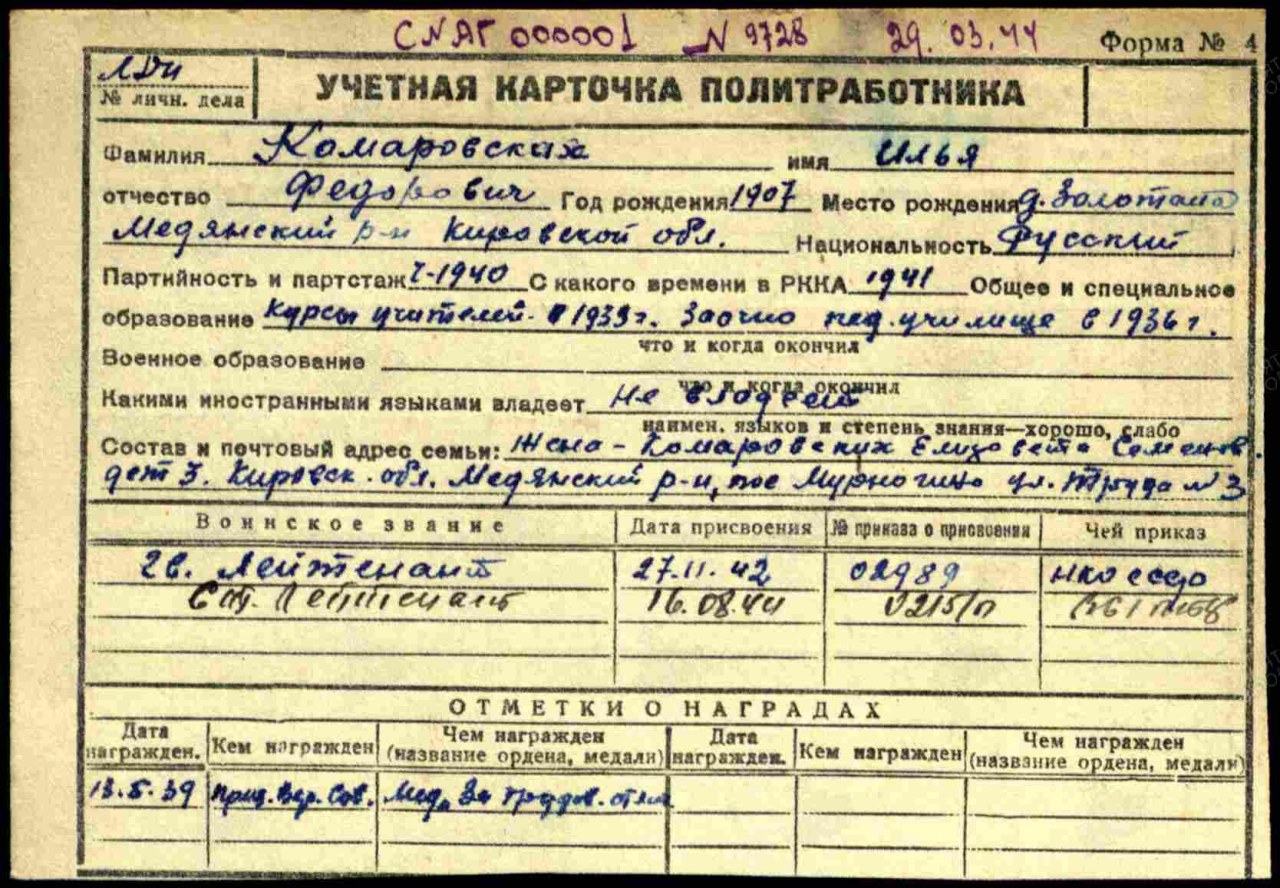 СЛАГ 000001 N 9728 29.03.44 Форма № 4
№ личн. дела
УЧЕТНАЯ КАРТОЧКА ПОЛИТРАБОТНИКА
Фамилия Комаровских имя Илья
отчество Федорович Год рождения 1907 Место рождения д. Золотана
Медянский р-н Кировской обл. Национальность Русский
Партийность и партстаж 1940 С какого времени в РККА 1941 Общее и специальное
образование Курсы учителей в 1933 г. Заочно пед. училище в 1936 г.
что и когда окончил
Военное образование
что и когда окончил
Какими иностранными языками владеет не владеет
наимен. языков и степень знания—хорошо, слабо
Состав и почтовый адрес семьи: Жена - Комаровских Елизовета Семенов.
дет 3. Кировск. обл. Медянский р-н, пос Мурыгино ул. Труда № 3
Воинское звание Дата присвоения № приказа о присвоении Чей приказ
Гв. Лейтенант 27.11.42 02989
Ст. Лейтенант 16.08.44 0215/п
ОТМЕТКИ О НАГРАДАХ
Дата награжден. Кем награжден Чем награжден (название ордена, медали) Дата награжден. Кем награжден Чем награжден (название ордена, медали)
13.5.39 През. Вер. Сов. Мед. За трудов. отлич